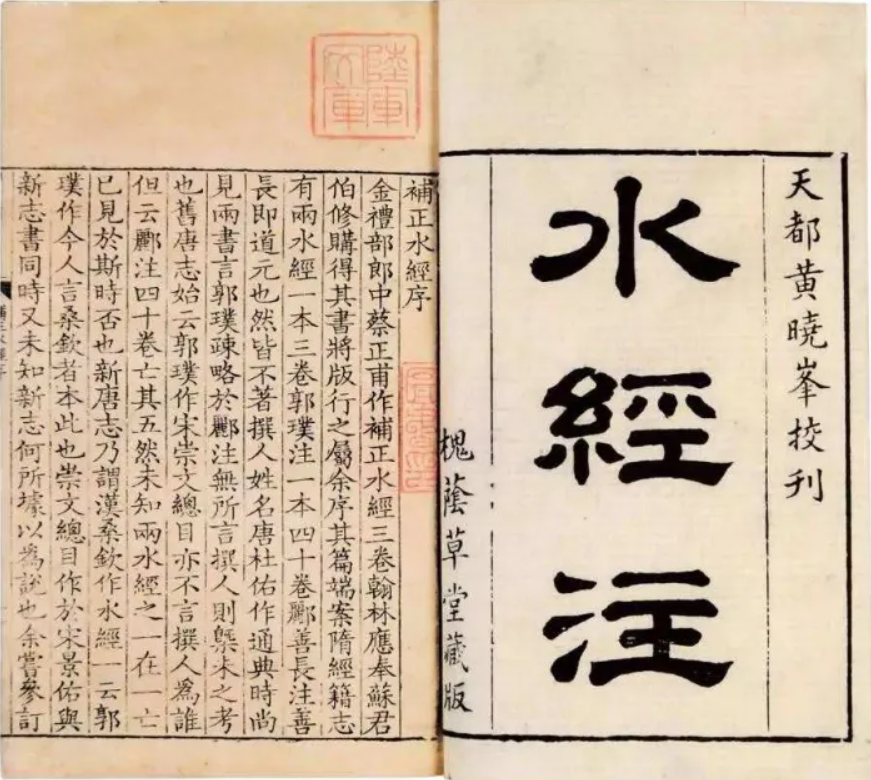 天都黄曉峯挍刊
水經注
槐蔭草堂藏版
陸軍
文庫
補正水經序
金禮部郎中蔡正甫作補正水經三卷翰林應奉蘇君
伯修購得其書將版行之屬余序其篇端案隋經籍志
有兩水經一本三卷郭璞注一本四十卷酈善長注善
長即道元也然皆不著撰人姓名唐杜佑作通典時尚
見兩書言郭璞疎略於酈注無所言撰人則槩未之考
也舊唐志始云郭璞作宋崇文總目亦不言撰人為誰
但云酈注四十卷亡其五然未知兩水經之一在一亡
已見於斯時否也新唐志乃謂漢桑欽作水經一云郭
璞作今人言桑欽者本此也崇文總目作於宋景佑與
新志書同時又未知新志何所據以為說也余嘗參訂